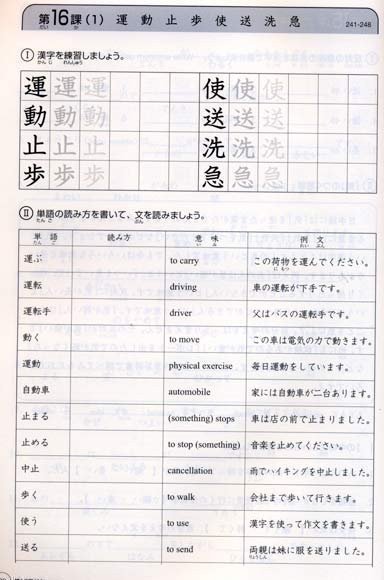 第16課(1) 運動止歩使送洗急 241-248
だい か
Ⅰ 漢字を練習しましょう。
かんじ れんしゅう
運 運 運 使 使 使
動 動 動 送 送 送
止 止 止 洗 洗 洗
歩 歩 歩 急 急 急
Ⅱ 単語の読み方を書いて、文を読みましょう。
たんご ぶん
単語 読み方 意味 例文
たんご いみ れいぶん
運ぶ to carry この荷物を運んでください。
にもつ
運転 driving 車の運転が下手です。
運転手 driver 父はバスの運転手です。
動く to move この車は電気の力で動きます。
運動 physical exercise 毎日運動をしています。
自動車 automobile 家には自動車が二台あります。
止まる (something) stops 車は店の前で止まりました。
止める to stop (something) 音楽を止めてください。
中止 cancellation 雨でハイキングを中止しました。
歩く to walk 会社まで歩いて行きます。
使う to use 漢字を使って作文を書きます。
送る to send 両親は妹に服を送りました。
りょうしん